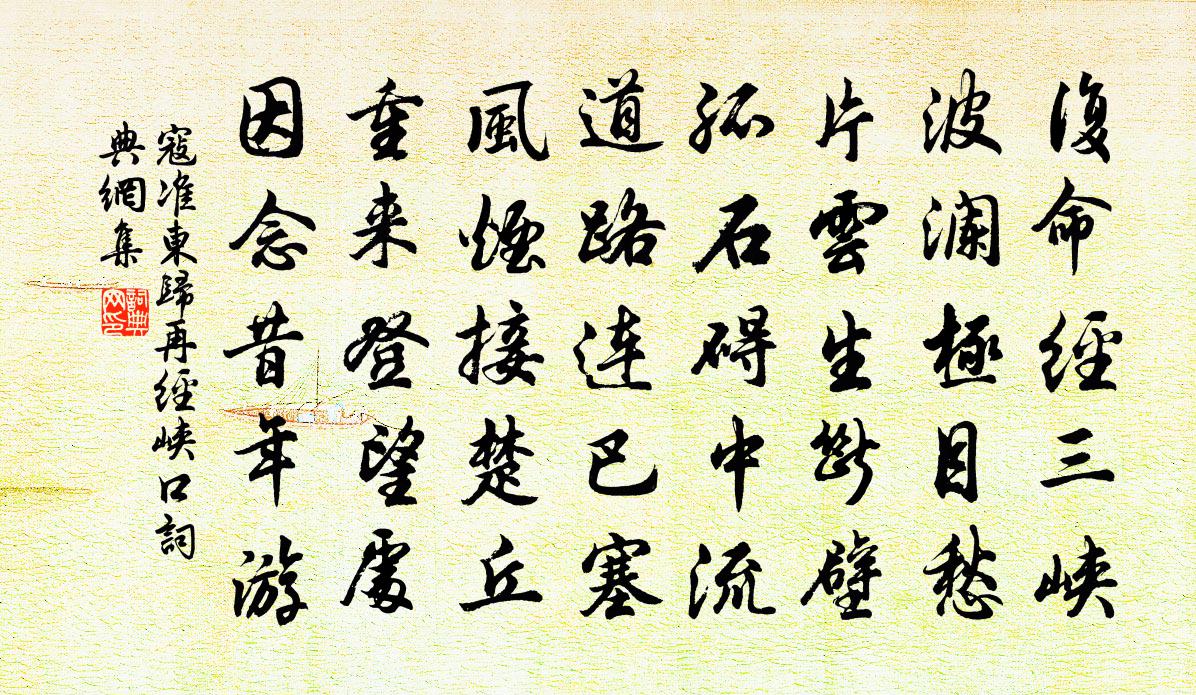 復命經三峽
波澜極目愁
片雲生斷壁
孤石碍中流
道路连巴塞
風煙接楚丘
重来登望處
因念昔年游
寇准東歸再經峽口詞
典網集
詞典
网印